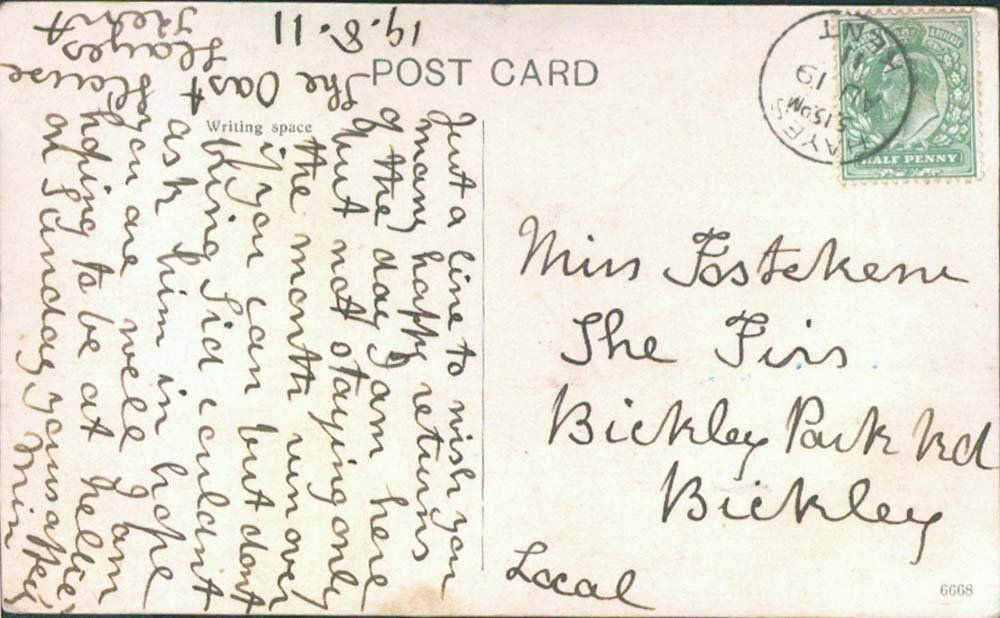 POST CARD
Writing space
19.8.11
The Oast
House
Hayes
Kent
Just a line to wish you
many happy returns
of the day I am here
but not staying only
the month run over
if you can but dont
bring Sid couldnt
ask him in hope
you are well I am
hoping to be at
on Sunday yours affec
Min
HAYES
5.15PM
AU 19
11
KENT
HALF PENNY
Miss
The Firs
Bickley Park Rd
Bickley
Local
6668